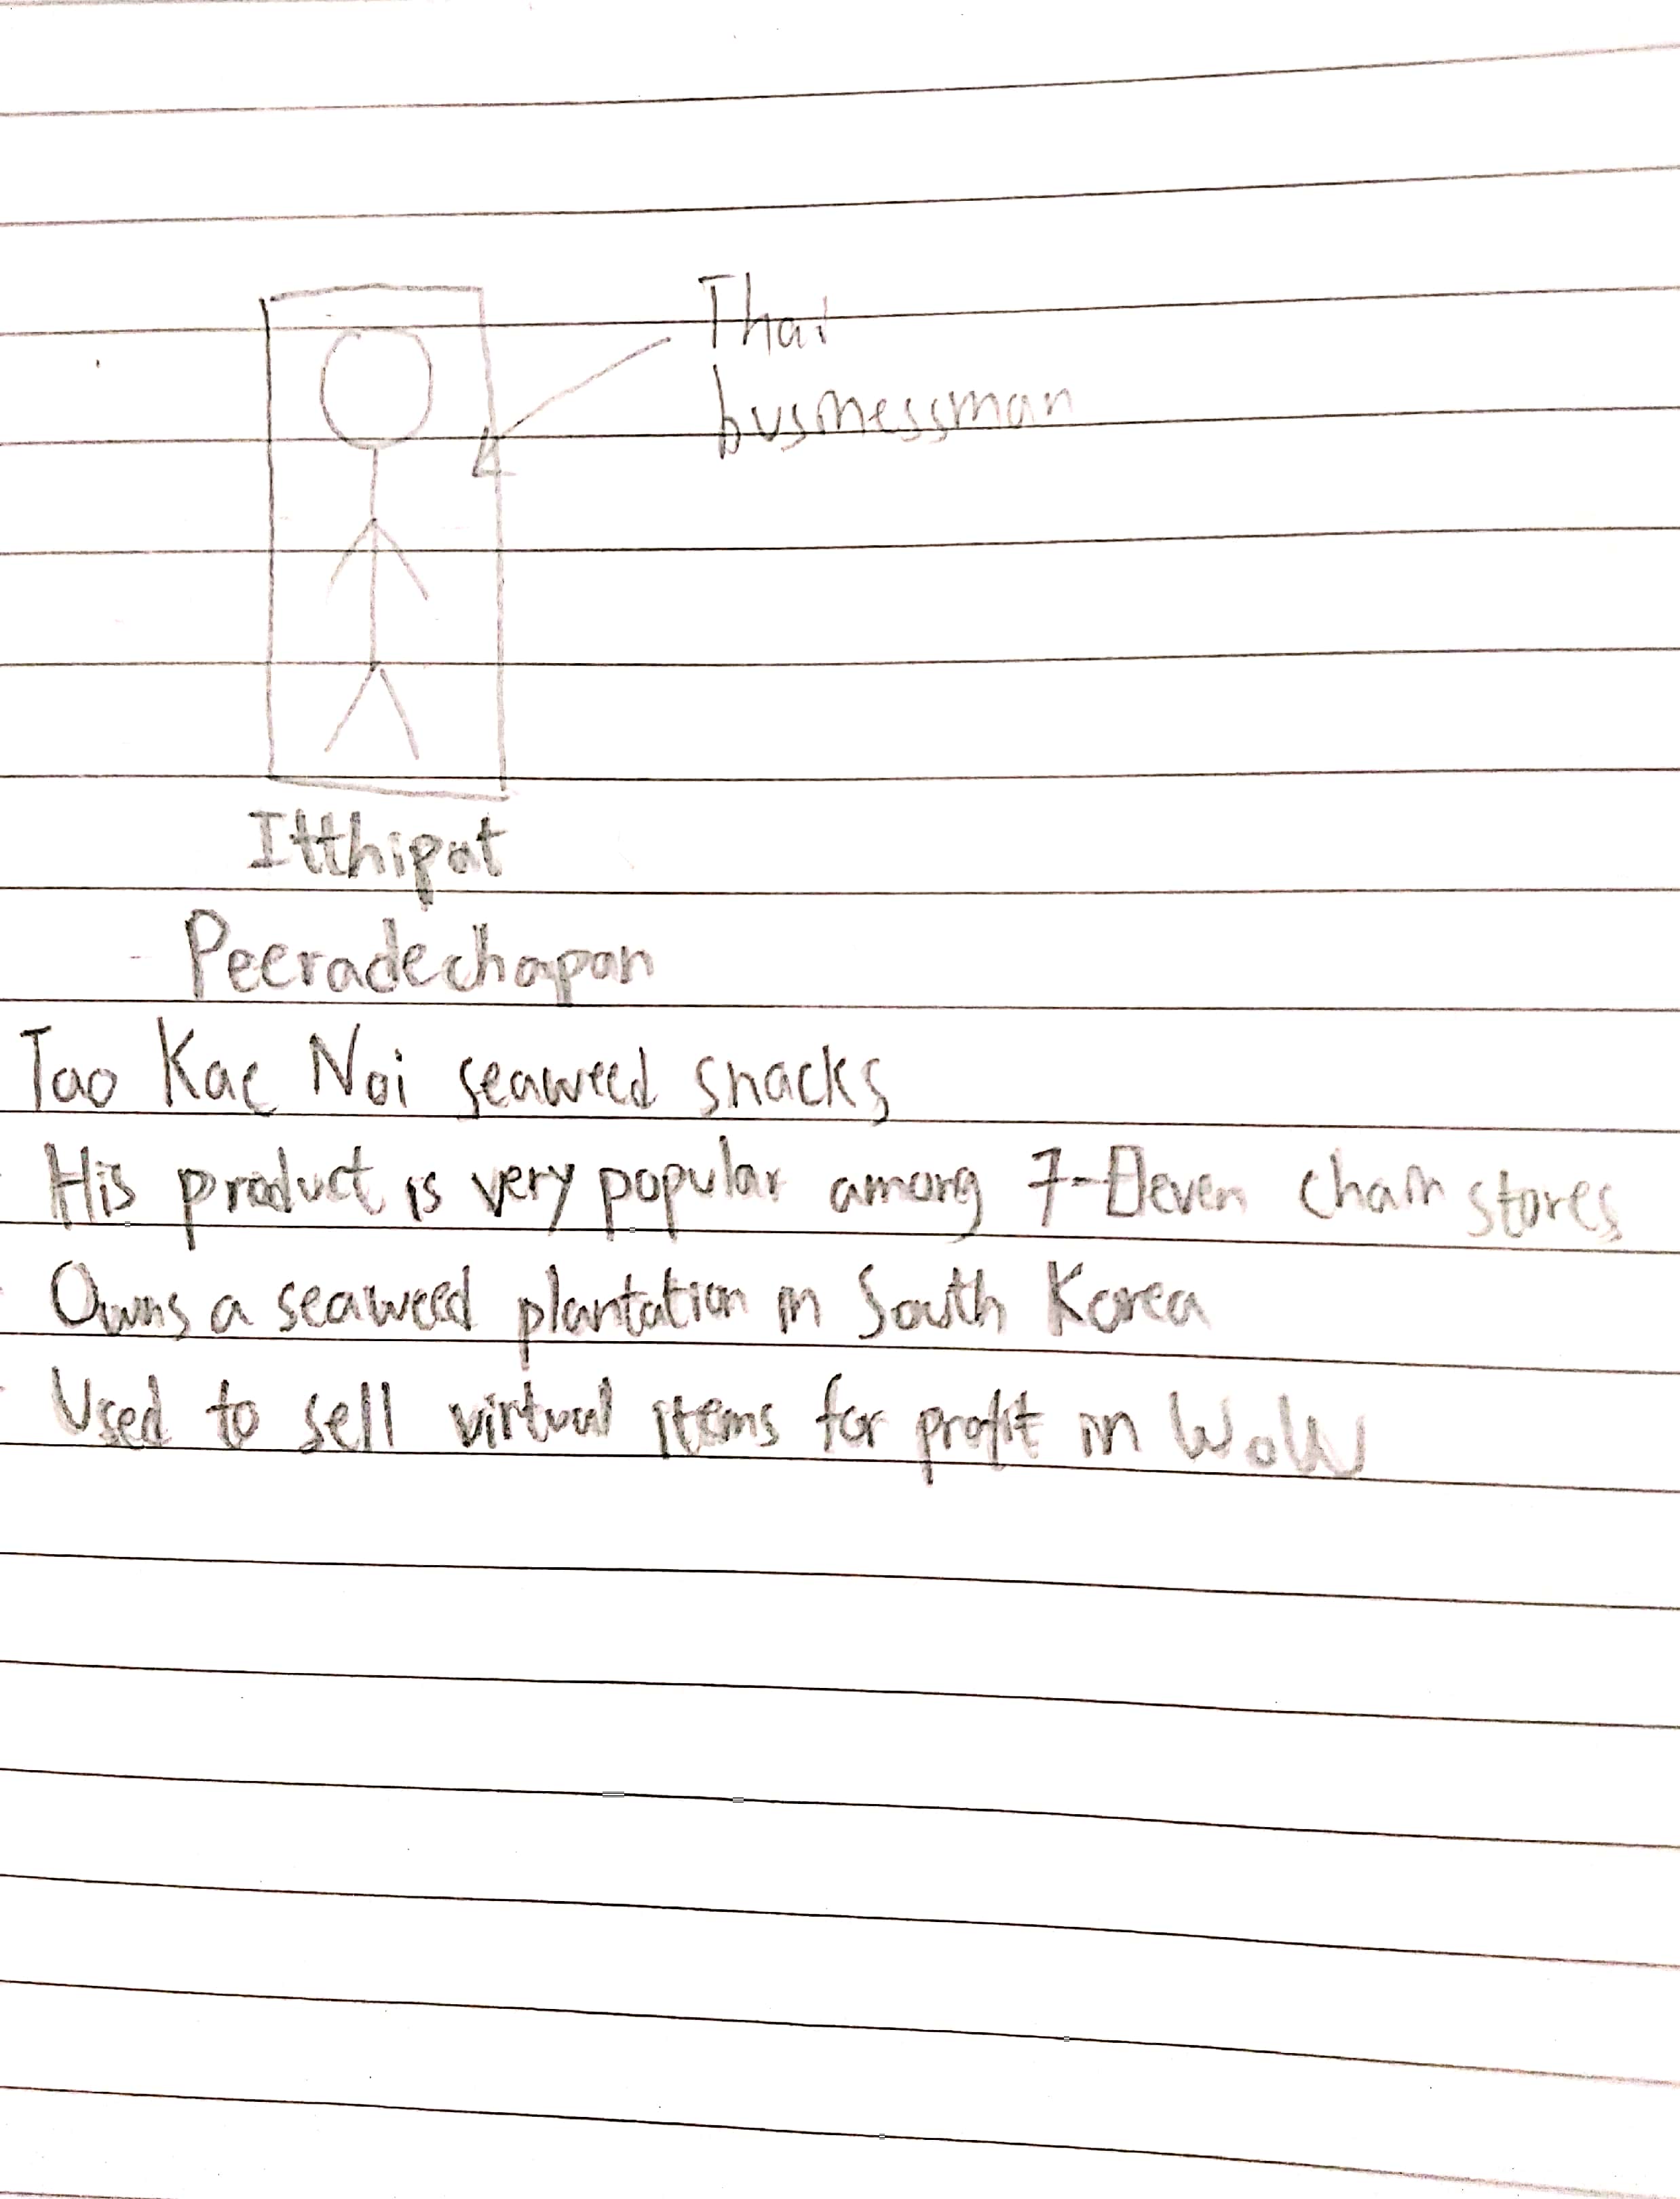 Thai
businessman
Itthipat
Peeradechapan
Tao Kae Noi seaweed snacks
His product is very popular among 7-Eleven chain stores
Owns a seaweed plantation in South Korea
Used to sell virtual items for profit in WoW